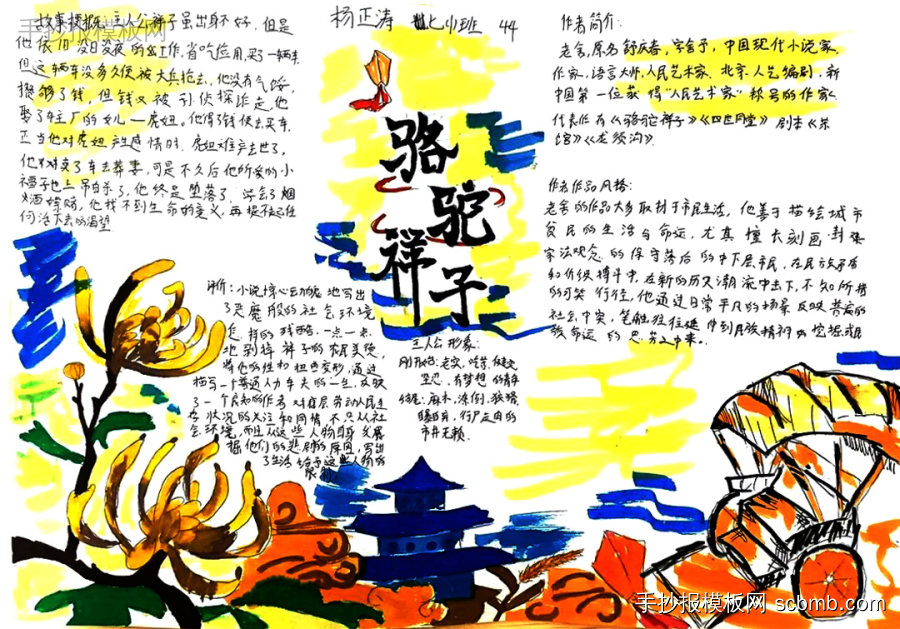 故事梗概：主人公祥子虽出身不好，但是
他依旧没日没夜的工作，省吃俭用，买了一辆车
但这辆车没多久便被大兵抢去，他没有气馁，
攒够了钱，但钱又被引侦探诈走，他
娶了车厂的女儿一虎妞。他得了钱便去买车，
正当他对虎妞产生感情时，虎妞难产去世了，
他不对卖了车去葬妻，可是不久后他所爱的小
福子也上吊自杀了，他终是堕落了，学会了烟
酒嫖赌，他找不到生命的意义，再提不起任
何活下去的渴望
杨正涛 七小班 44
骆
驼
祥
子
作者简介：
老舍，原名舒庆春，字舍予，中国现代小说家、
作家，语言大师，人民艺术家、北京人艺编剧，新
中国第一位获得“人民艺术家”称号的作家。
代表作有《骆驼祥子》《四世同堂》剧本《茶
馆》《龙须沟》
作者作品风格：
老舍的作品大多取材于市民生活，他善于描绘城市
贫民的生活与命运，尤其擅长刻画封建
宗法观念的保守落后的中下层市民，在民族矛盾
和阶级搏斗中，在新的历史潮流中击下，不知所措
的可笑行径，他通过日常平凡的场景反映普遍的
社会冲突，笔触往往延伸到民族精神的挖掘或民
族命运的思考之中来。
评价：小说惊心动魄地写出
了恶魔般的社会环境
是怎样的残酷，一点一点
地剥掉祥子的农民美德，
将他的性扭曲变形，通过
描写一个普通人力车夫的一生，反映
了一个良知的作者对底层劳动人民生
存状况的关注和同情，不只从社
会环境，而且从这些人物自身发展
揭他们的悲剧的原因，写出
了生活给予这些人物的
限制
主人公形象：
刚开始：老实，吃苦，健壮
坚忍，有梦想的青年
结尾：麻木，潦倒，狡猾
自私，行尸走肉的
市井无赖
手抄报模板网
手抄报模板网 scbmb.com